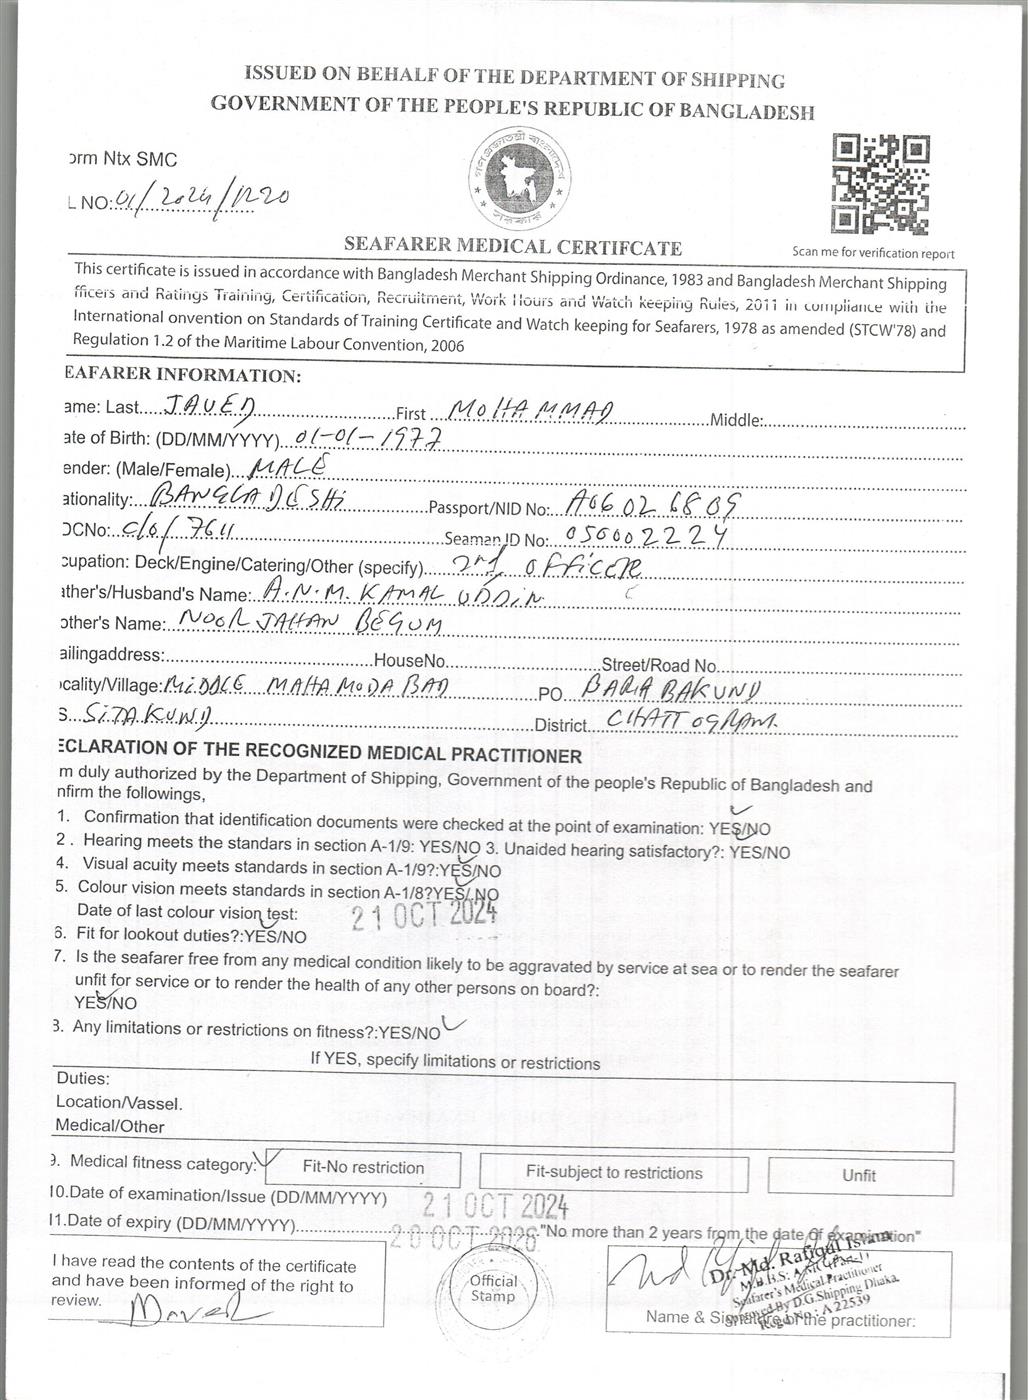 ISSUED ON BEHALF OF THE DEPARTMENT OF SHIPPING
GOVERNMENT OF THE PEOPLE'S REPUBLIC OF BANGLADESH
orm Ntx SMC
L NO:01/2024/1220
SEAFARER MEDICAL CERTIFCATE
Scan me for verification report
This certificate is issued in accordance with Bangladesh Merchant Shipping Ordinance, 1983 and Bangladesh Merchant Shipping
fficers and Ratings Training, Certification, Recruitment, Work Hours and Watch keeping Rules, 2011 in compliance with the
International onvention on Standards of Training Certificate and Watch keeping for Seafarers, 1978 as amended (STCW'78) and
Regulation 1.2 of the Maritime Labour Convention, 2006
EAFARER INFORMATION:
ame: Last.....JAVED.....First....MOHAMMAD.....Middle:.....
ate of Birth: (DD/MM/YYYY)...01-01-1977
ender: (Male/Female)...MALE
ationality:...BANGLADESHi.....Passport/NID No:...A06026809
DCNo:...C/O/7611.....Seaman ID No:...050002224
cupation: Deck/Engine/Catering/Other (specify)....2nd OFFICER
ather's/Husband's Name:...A.N.M. KAMAL UDDIN
other's Name: NOOR JAHAN BEGUM
ailingaddress:.....HouseNo.....Street/Road No.....
ocality/Village:MiDDLE MAHAMODABAD PO BARABAKUND
S...SITAKUND.....District...CHATTOGRAM.
ECLARATION OF THE RECOGNIZED MEDICAL PRACTITIONER
m duly authorized by the Department of Shipping, Government of the people's Republic of Bangladesh and
nfirm the followings,
1. Confirmation that identification documents were checked at the point of examination: YES/NO
2 . Hearing meets the standars in section A-1/9: YES/NO 3. Unaided hearing satisfactory?: YES/NO
4. Visual acuity meets standards in section A-1/9?:YES/NO
5. Colour vision meets standards in section A-1/8?YES/ NO
Date of last colour vision test: 21 OCT 2024
6. Fit for lookout duties?:YES/NO
7. Is the seafarer free from any medical condition likely to be aggravated by service at sea or to render the seafarer
unfit for service or to render the health of any other persons on board?:
YES/NO
8. Any limitations or restrictions on fitness?:YES/NO
If YES, specify limitations or restrictions
Duties:
Location/Vassel.
Medical/Other
9. Medical fitness category: Fit-No restriction Fit-subject to restrictions Unfit
10.Date of examination/Issue (DD/MM/YYYY) 21 OCT 2024
11.Date of expiry (DD/MM/YYYY)..... 20 OCT 2026 "No more than 2 years from the date of examination"
I have read the contents of the certificate
and have been informed of the right to
review.
Official
Stamp
Dr. Md. Rafiqul Islam
M.B.B.S.
Seafarer's Medical Practitioner
Approved By D.G.Shipping Dhaka.
Regd No: A 22539
Name & Signature of the practitioner: